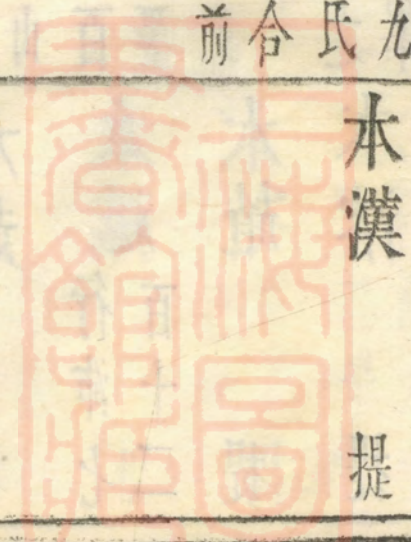 九氏合前
本漢 提
上海圖
書館藏